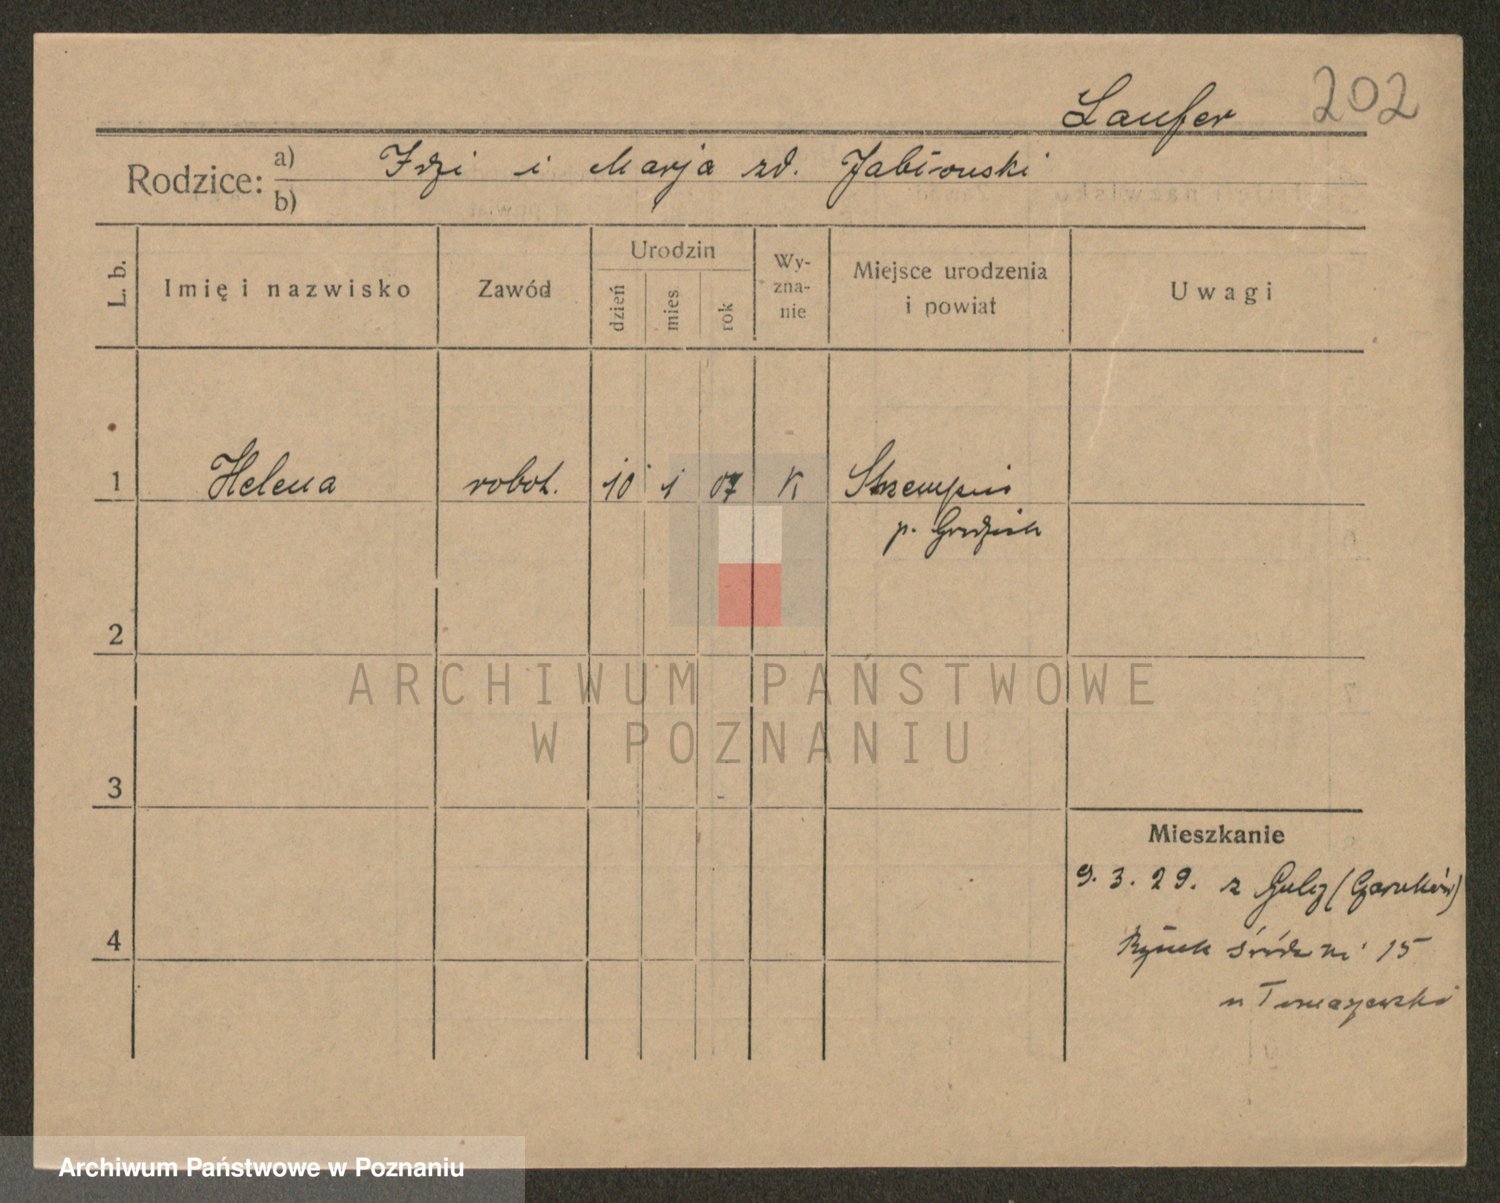 Laufer 202
Rodzice: a) Idzi i Marja zd. Jabłonski
b)
L. b.
Imię i nazwisko
Zawód
Urodzin
dzień
mies
rok
Wy-
zna-
nie
Miejsce urodzenia
i powiat
Uwagi
1 Helena robot. 10 1 07 K Strzempin
p. Grodzisk
2
3
4
ARCHIWUM PAŃSTWOWE
W POZNANIU
Mieszkanie
9. 3. 29. z (Czarnków)
Rynek śródm 15
u Tomaszewski
Archiwum Państwowe w Poznaniu